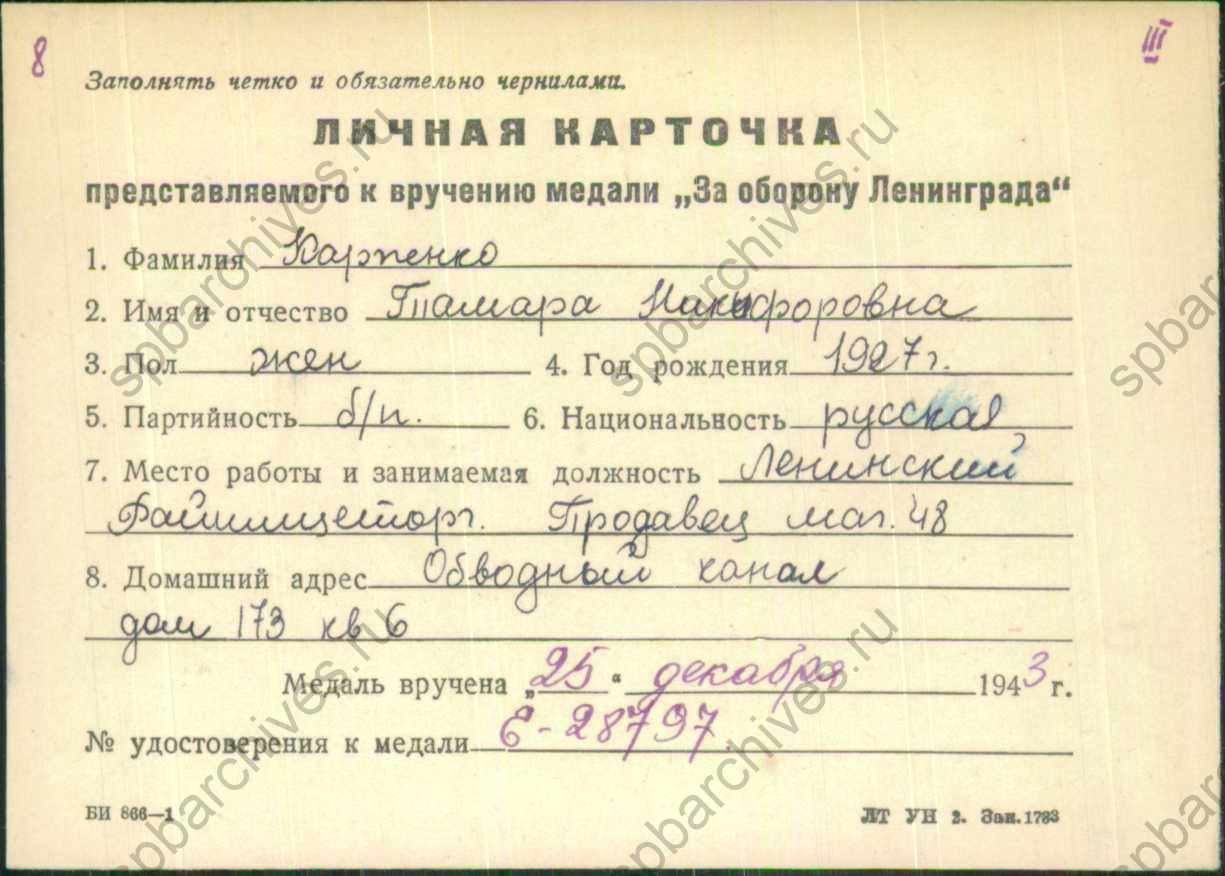 8
III
Заполнять четко и обязательно чернилами.
ЛИЧНАЯ КАРТОЧКА
представляемого к вручению медали „За оборону Ленинграда“
1. Фамилия Карпенко
2. Имя и отчество Тамара Никифоровна
3. Пол жен 4. Год рождения 1927 г.
5. Партийность б/п. 6. Национальность русская
7. Место работы и занимаемая должность Ленинский
Райпищеторг. Продавец маг. 48
8. Домашний адрес Обводный канал
дом 173 кв 6
Медаль вручена „25“ декабря 1943 г.
№ удостоверения к медали Е-28797.
БИ 866—1 ЛТ УН 2. Зак. 1783
spbarchives.ru